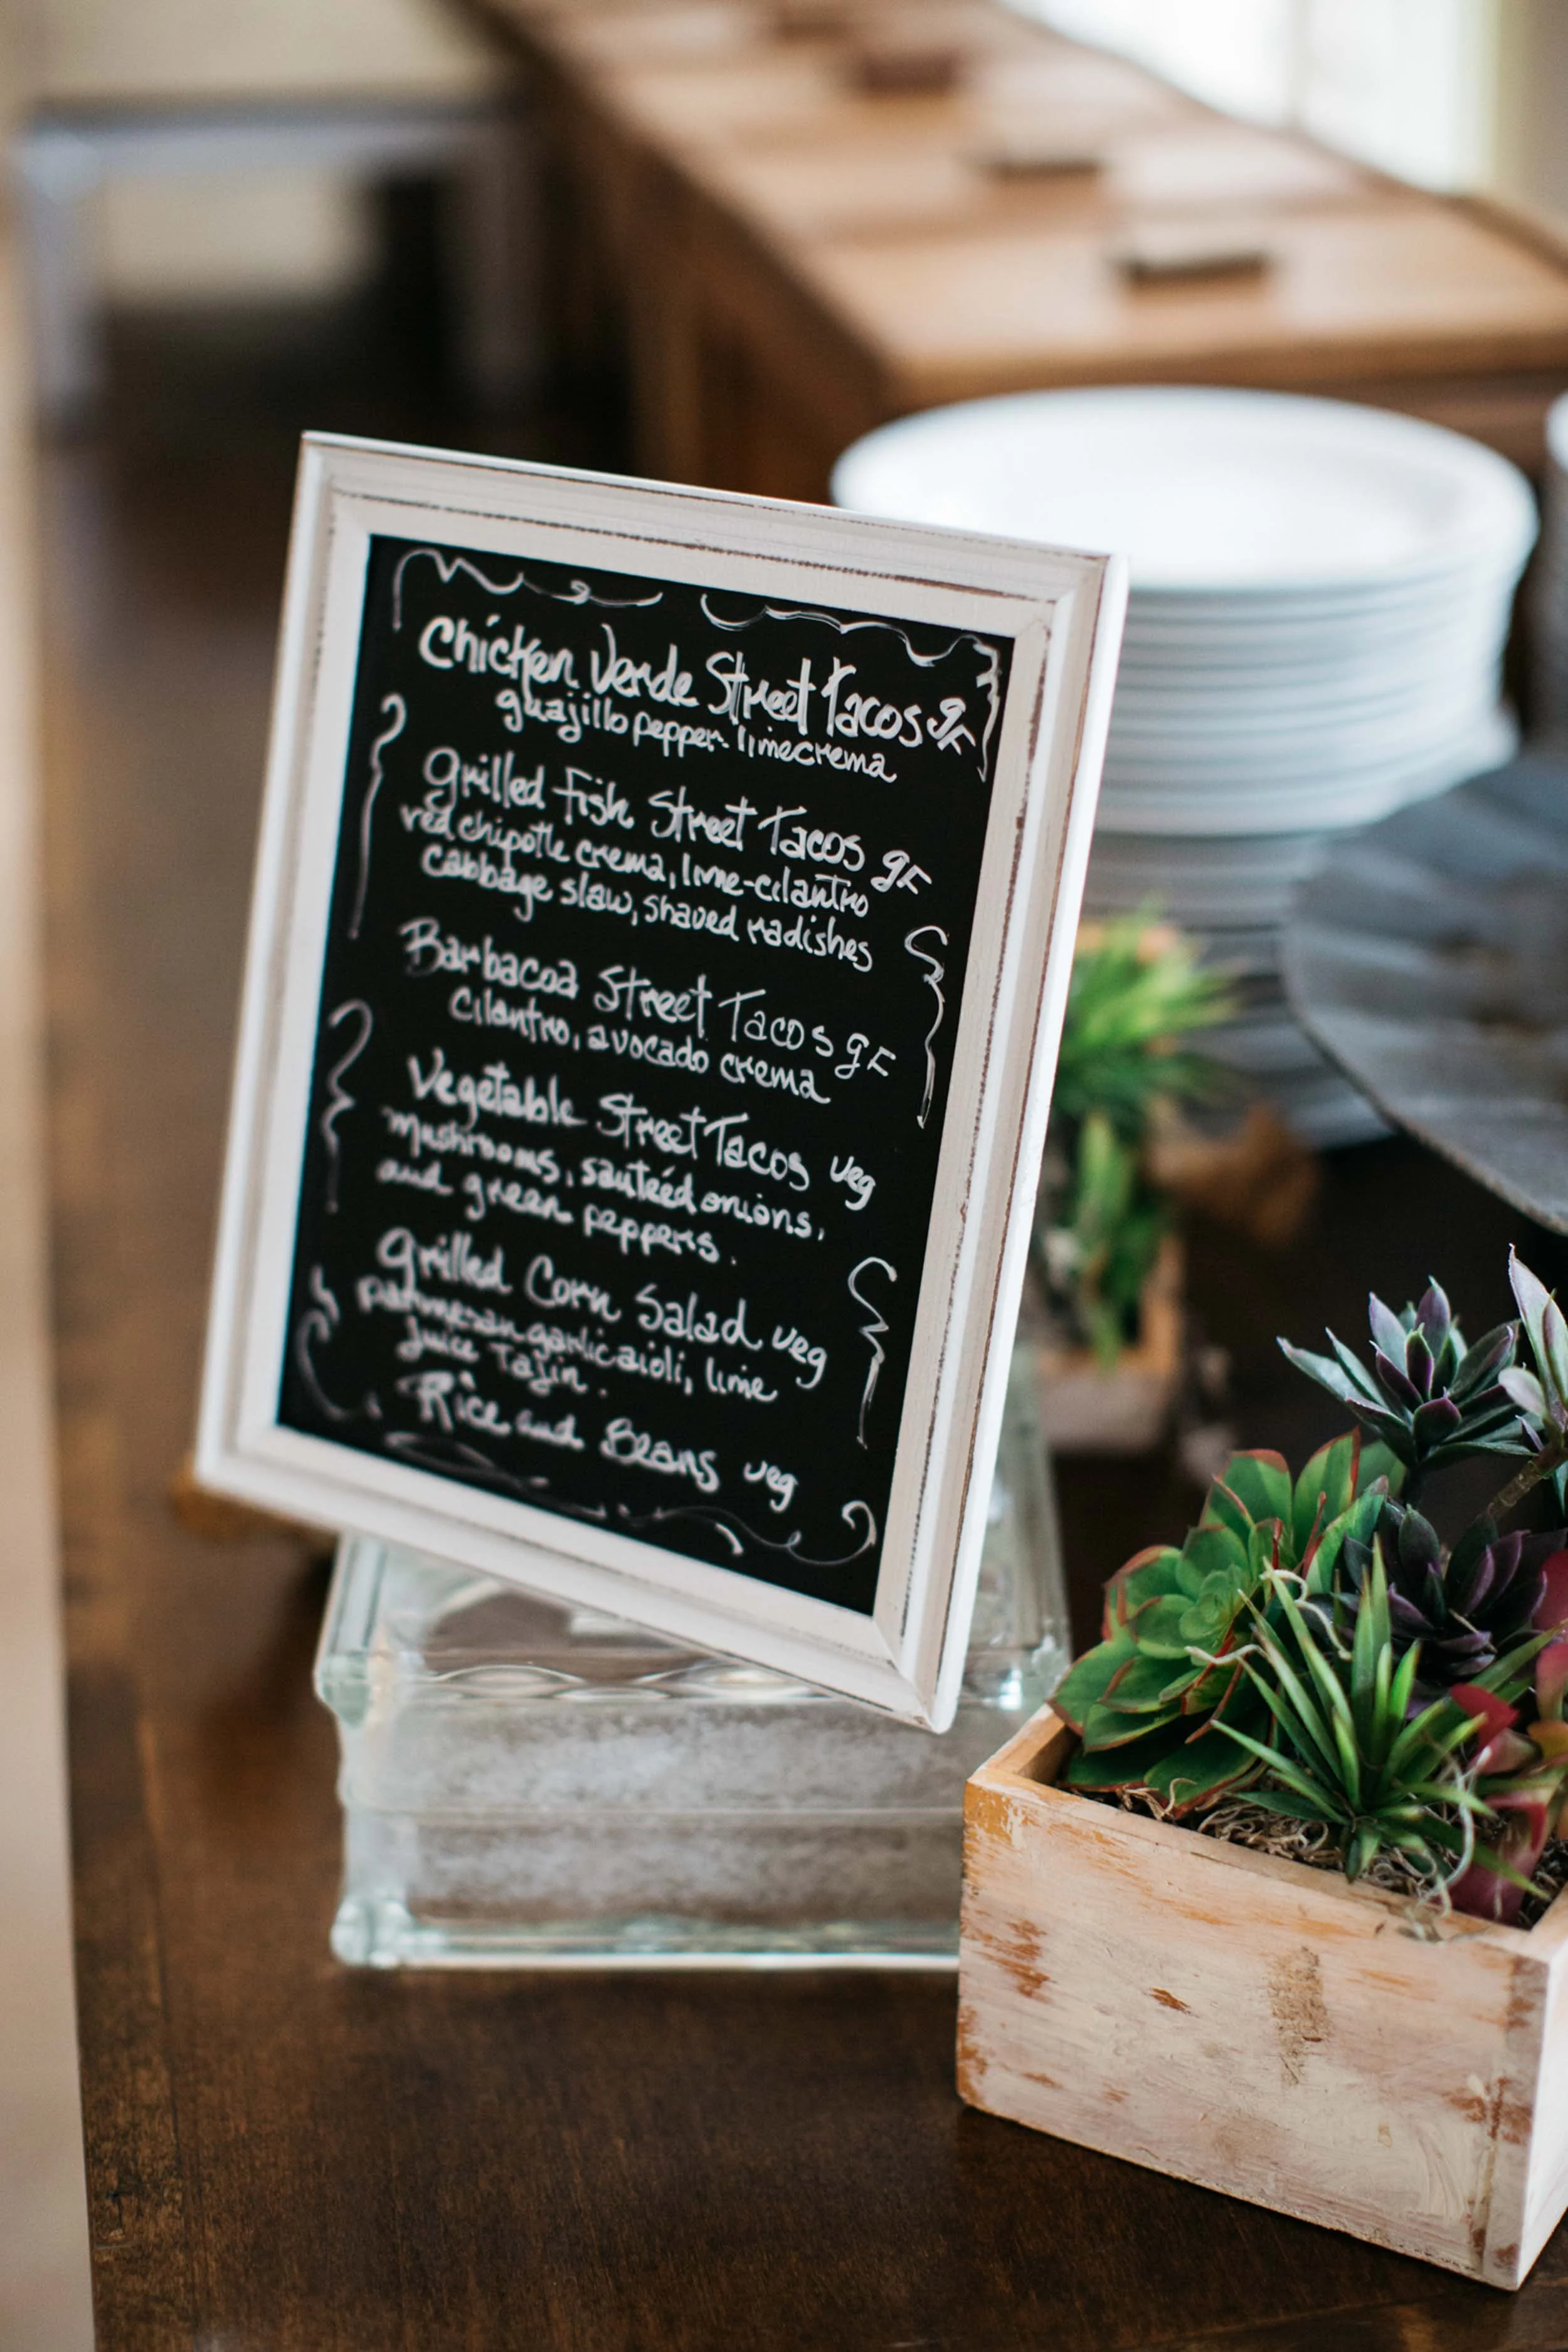 Chicken Verde Street Tacos gF
guajillo pepper. lime crema
Grilled Fish Street Tacos gF
red chipotle crema, lime-cilantro
cabbage slaw, shaved radishes
Barbacoa Street Tacos gF
cilantro, avocado crema
Vegetable Street Tacos veg
mushrooms, sautéed onions,
and green peppers.
Grilled Corn Salad veg
parmesan garlic aioli, lime
juice Tajin.
Rice and Beans veg